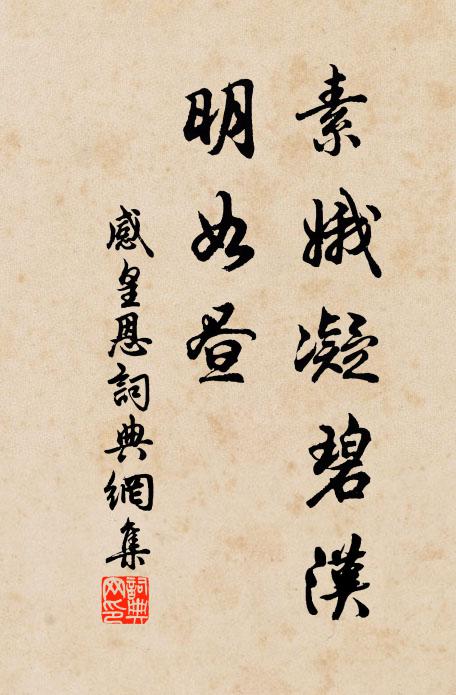 素娥凝碧漢
明如晝
感皇恩詞典網集
詞典網印